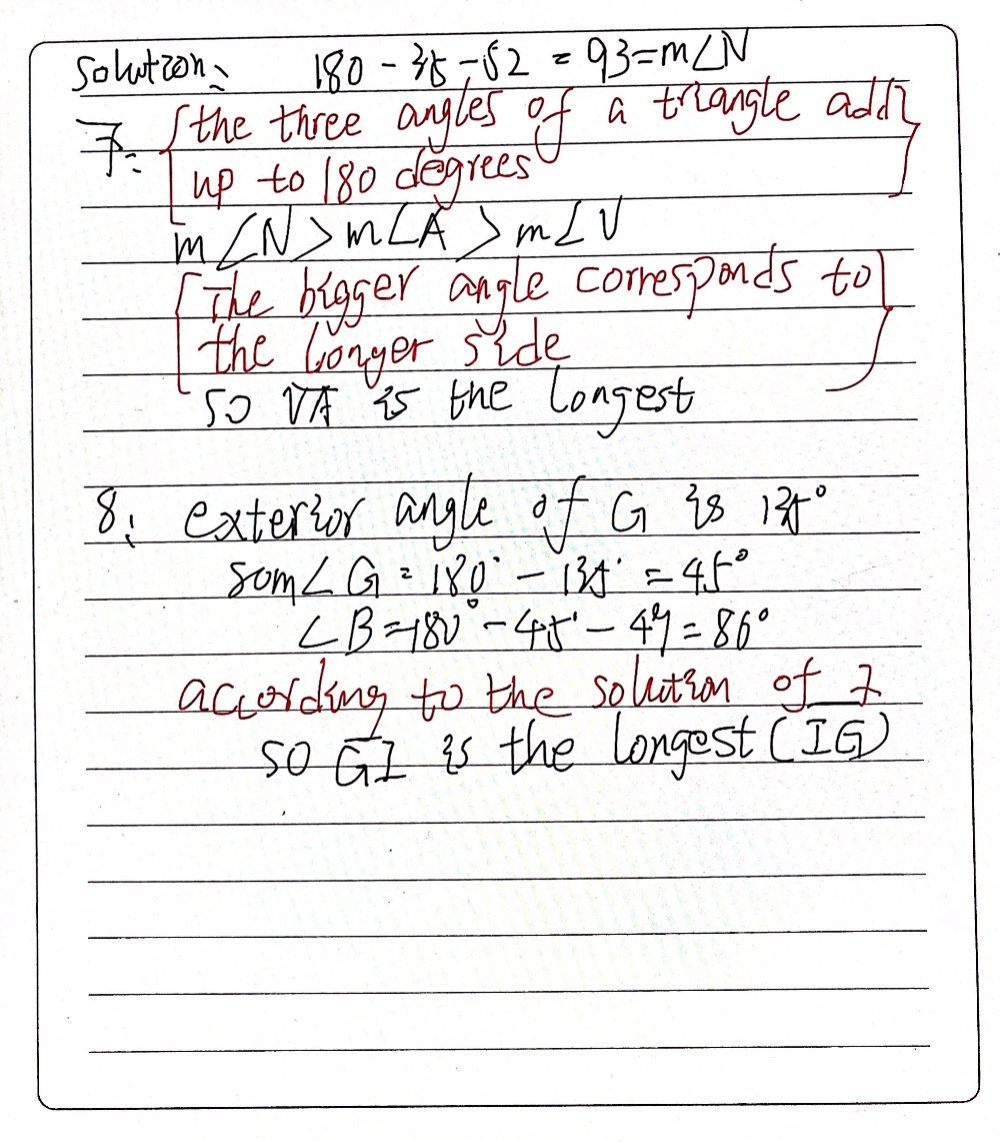 Solution: 180 - 35 - 52 = 93 = m∠N
7: {the three angles of a triangle add}
up to 180 degrees
m∠N > m∠A > m∠V
[The bigger angle corresponds to]
the longer side
SO VA is the longest
8: exterior angle of G is 135°
so m∠G = 180° - 135° = 45°
∠B = 180° - 45° - 49 = 86°
according to the solution of 7
SO GI is the longest (IG)